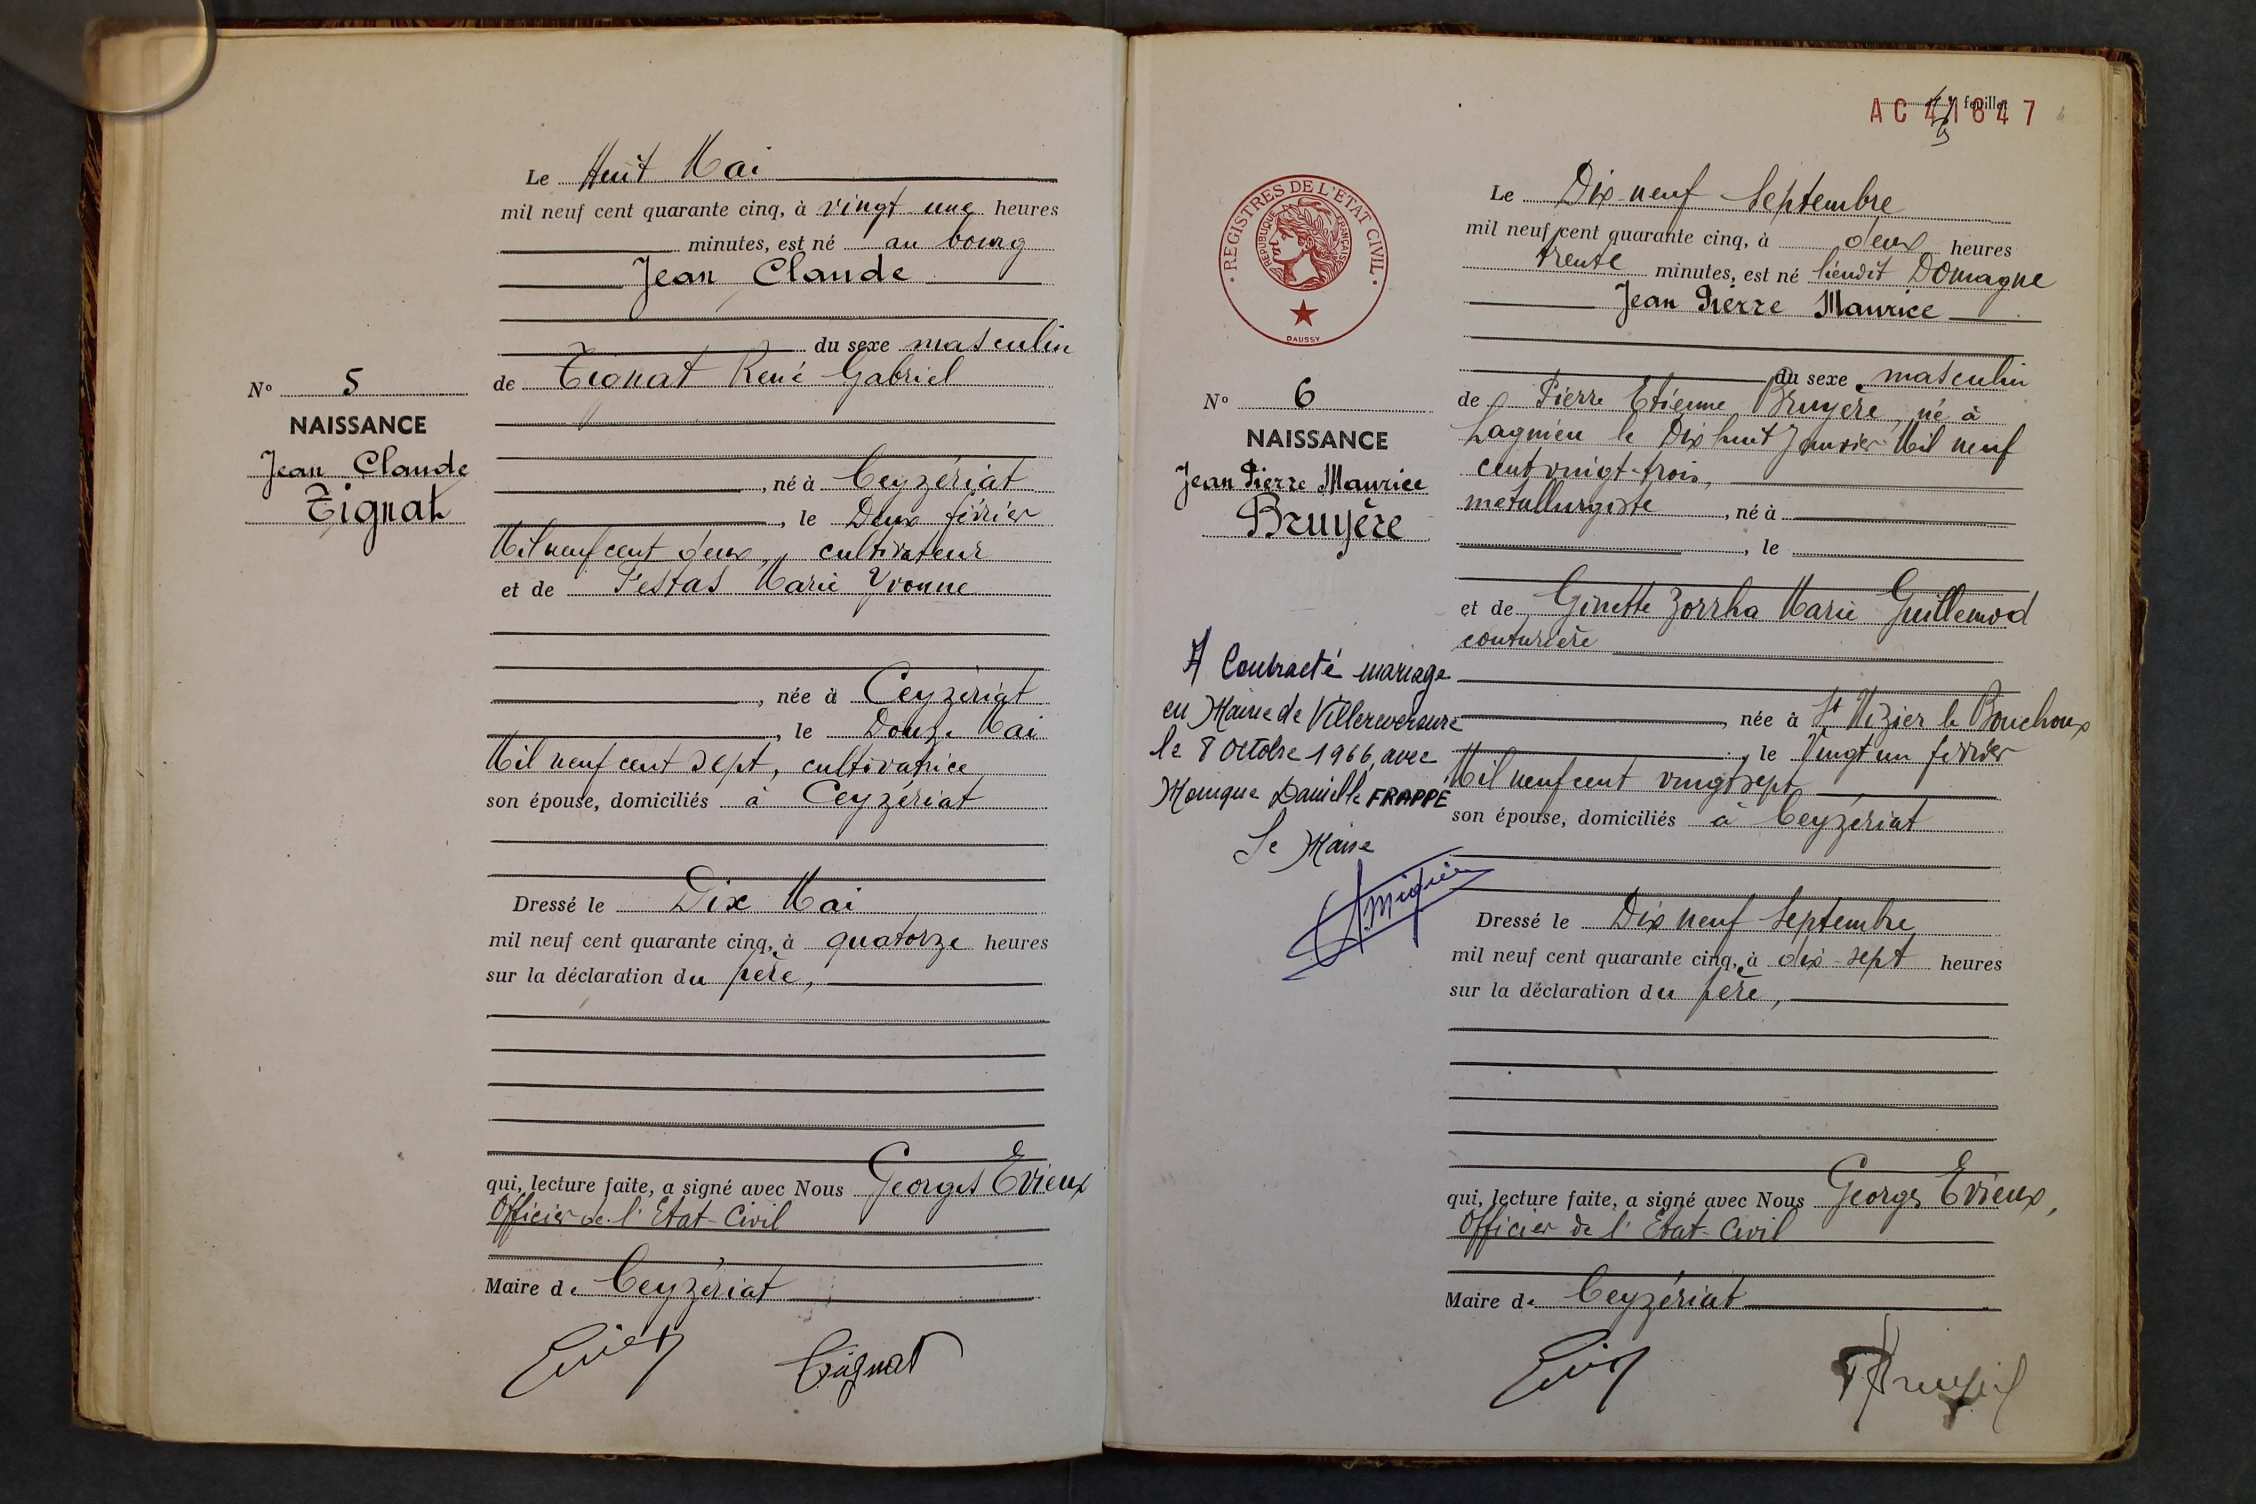 Le Huit Mai
mil neuf cent quarante cinq, à vingt une heures
minutes, est né au bourg
Jean Claude
du sexe masculin
de Tignat René Gabriel
N° 5
NAISSANCE
Jean Claude
Tignat
, né à Ceyzériat
, le Deux février
Mil neuf cent deux, cultivateur
et de Pestas Marie Yvonne
, née à Ceyzériat
, le Douze Mai
Mil neuf cent sept, cultivatrice
son épouse, domiciliés à Ceyzériat
Dressé le Dix Mai
mil neuf cent quarante cinq, à quatorze heures
sur la déclaration du père,
qui, lecture faite, a signé avec Nous Georges Evieux
Officier de l'Etat-Civil
Maire de Ceyzériat
Tignat
feuillet
AC 41847
REGISTRES DE L'ETAT CIVIL
REPUBLIQUE FRANÇAISE
DAUSSY
Le Dix-neuf Septembre
mil neuf cent quarante cinq, à deux heures
trente minutes, est né lieudit Domagne
Jean Pierre Maurice
du sexe masculin
de Pierre Etienne Bruyère, né à
Lagnieu le Dix huit Janvier Mil neuf
cent vingt-trois,
métallurgiste, né à
, le
N° 6
NAISSANCE
Jean Pierre Maurice
Bruyère
et de Ginette Zorrha Marie Guillemod
couturière
née à St Vizier le Bouchoux
, le Vingt un février
Mil neuf cent vingt sept
son épouse, domiciliés à Ceyzériat
A Contracté mariage
en Mairie de Villereversure
le 8 Octobre 1966, avec
Monique Danielle FRAPPE
Le Maire
Dressé le Dix neuf Septembre
mil neuf cent quarante cinq, à dix-sept heures
sur la déclaration du père,
qui, lecture faite, a signé avec Nous Georges Evieux,
Officier de l'Etat-Civil
Maire de Ceyzériat
Bruyère